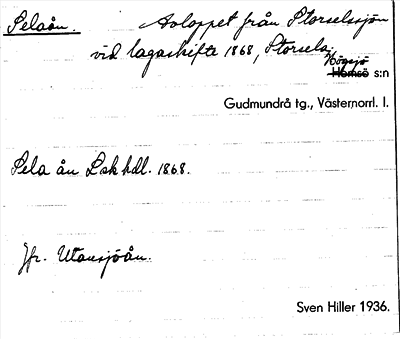 Selaån. Avloppet från Storselssjön
vid lagaskifte 1868, Storsela.
Högsjö
Hemsö s:n
Gudmundrå tg., Västernorrl. l.
Sela ån Lsk hdl. 1868.
Jfr. Utansjöån.
Sven Hiller 1936.